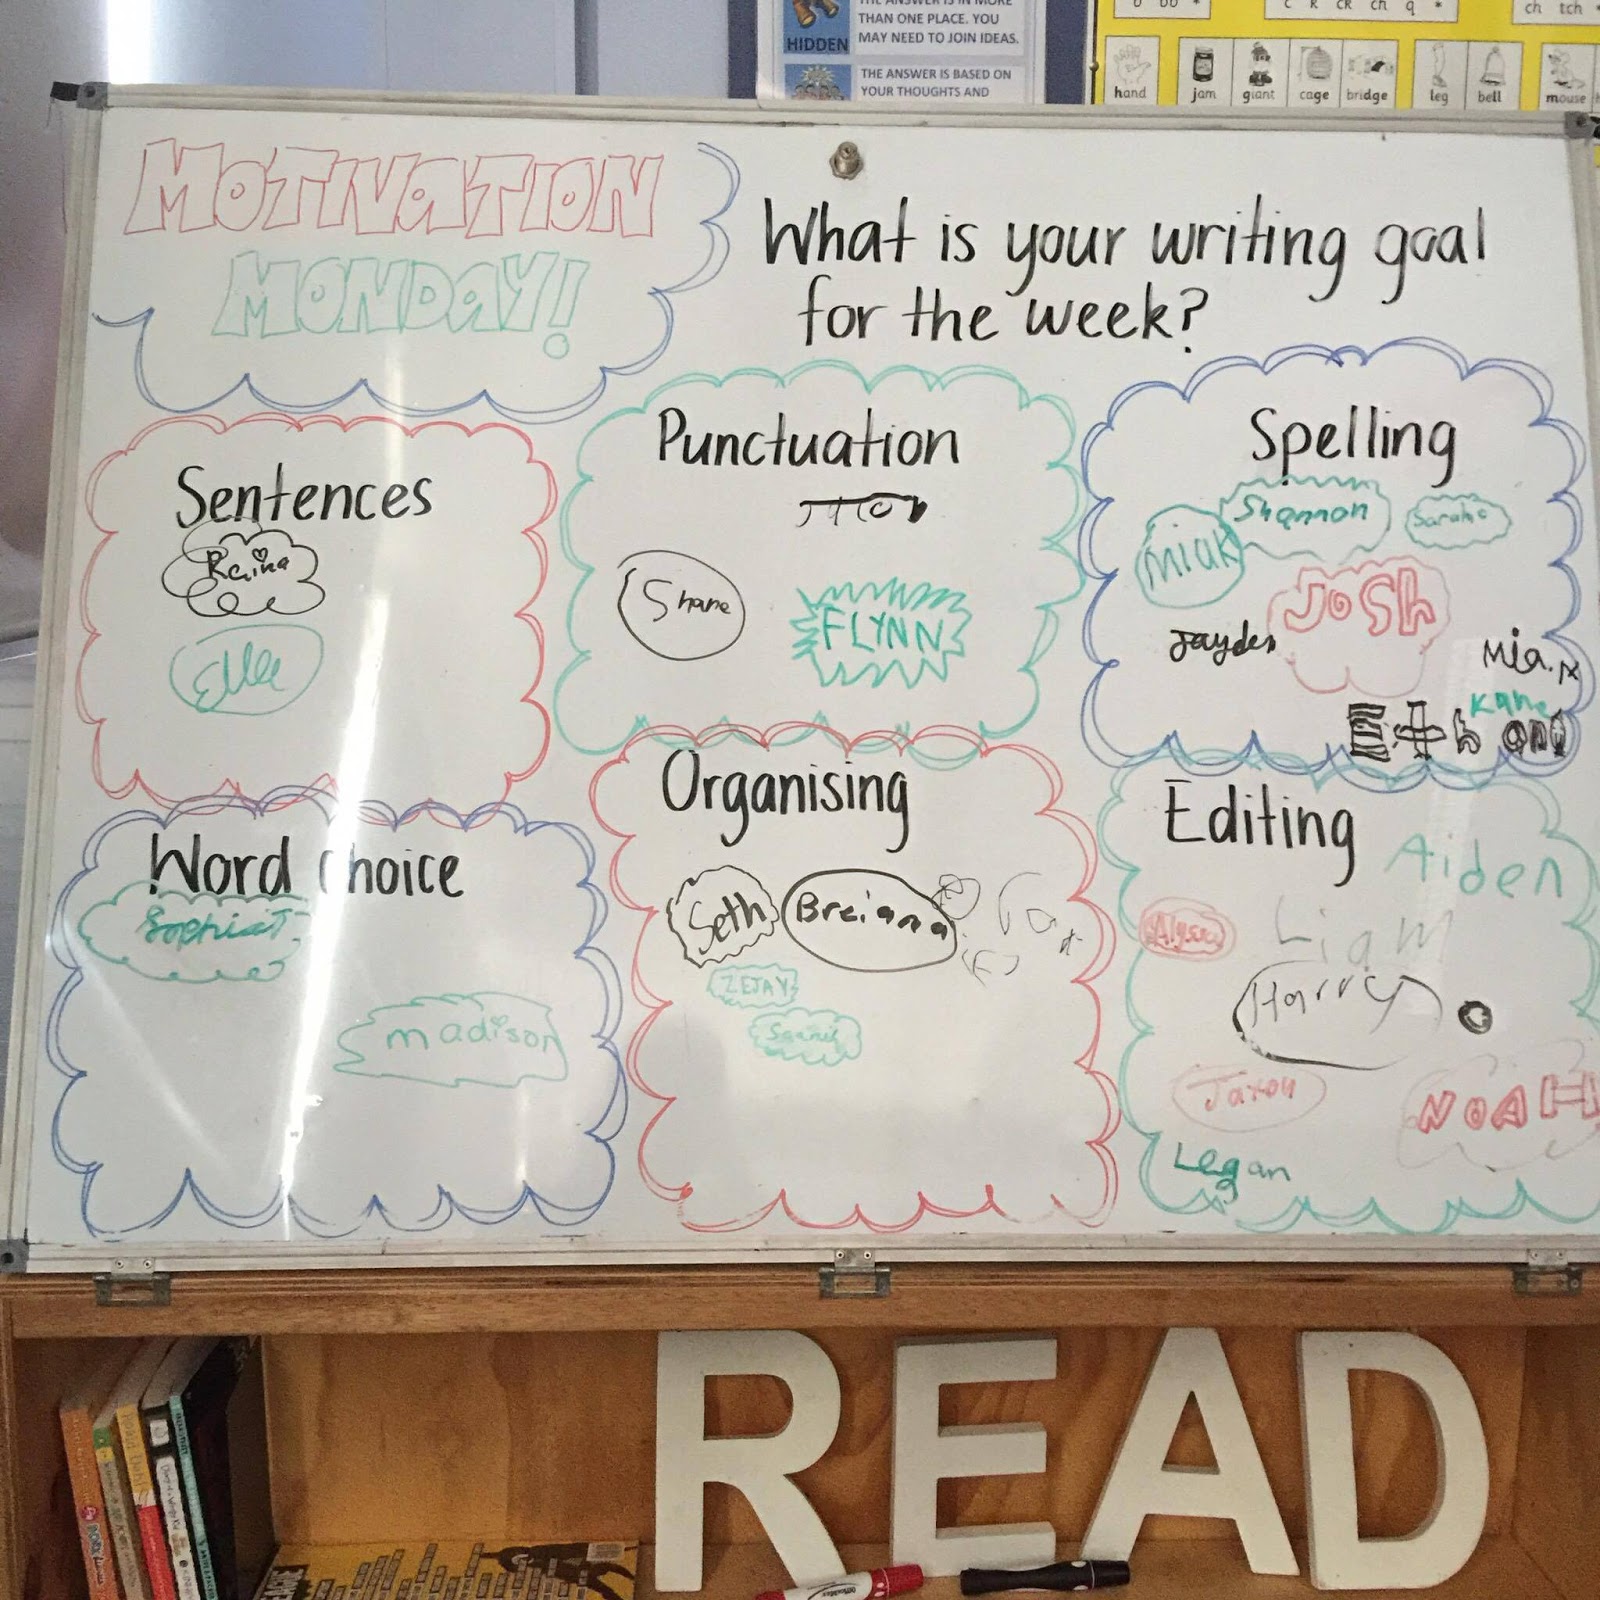 THE ANSWER IS IN MORE
THAN ONE PLACE. YOU
MAY NEED TO JOIN IDEAS.
HIDDEN
THE ANSWER IS BASED ON
YOUR THOUGHTS AND
c k ck ch q
ch tch
hand jam giant cage bridge leg bell mouse
MOTIVATION
MONDAY!
What is your writing goal
for the week?
Sentences
Raina
Ella
Punctuation
Shane
FLYNN
Spelling
Shannon
Miak
JOSh
Jayden
Mia.
Kane
Eth an
Word choice
Sophia T.
madison
Organising
Seth
Breiana
ZEJAY
Editing
Aiden
Alyssa
Liam
Harry
Jaxon
NOAH
Legan
READ